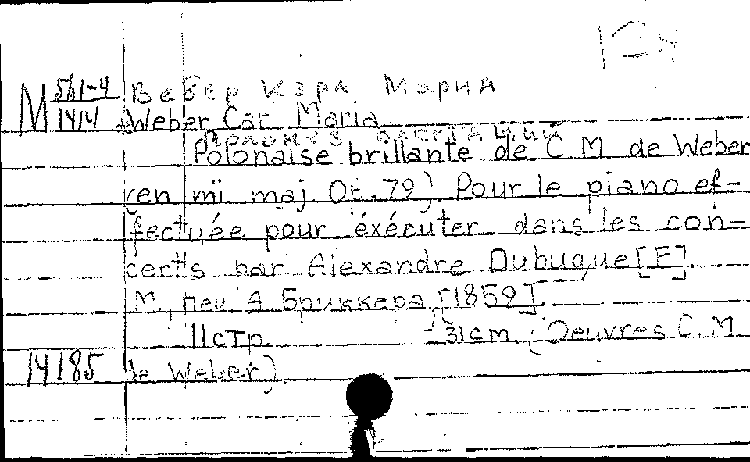 M 561-4/1414
Вебер Карл Мариа
Weber Car Maria
Polonaise brillante de C M de Weber
(en mi maj. Op. 72) Pour le piano ef-
fectuée pour éxécuter dans les con-
certs par Alexandre Dubuque [F].
М., печ А Бриккера, [1859].
11стр. 31cm. (Oeuvres C. M.
14185 de Weber).